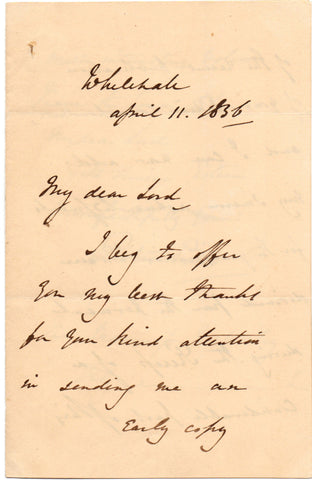 Whitehall
April 11. 1836
My dear Lord,
I beg to offer
you my best thanks
for your kind attention
in sending me an
Early copy